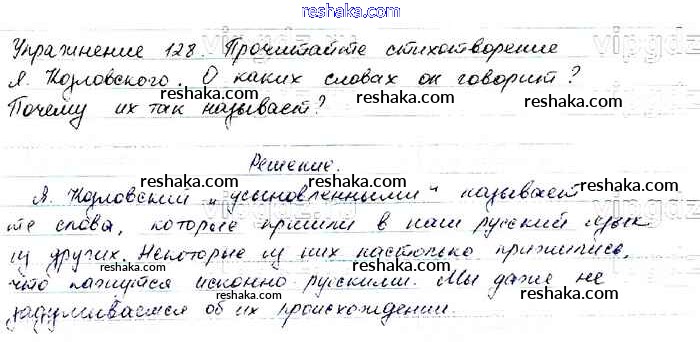 reshaka.com
Упражнение 128. Прочитайте стихотворение
Я. Козловского. О каких словах он говорит?
reshaka.com reshaka.com
Почему их так называет?
reshaka.com
Решение.
reshaka.com reshaka.com
Я. Козловский "усыновленными" называет
reshaka.com
те слова, которые пришли в наш русский язык
из других. Некоторые из них настолько прижились,
reshaka.com reshaka.com
что кажутся исконно русскими. Мы даже не
reshaka.com
задумываемся об их происхождении.
reshaka.com